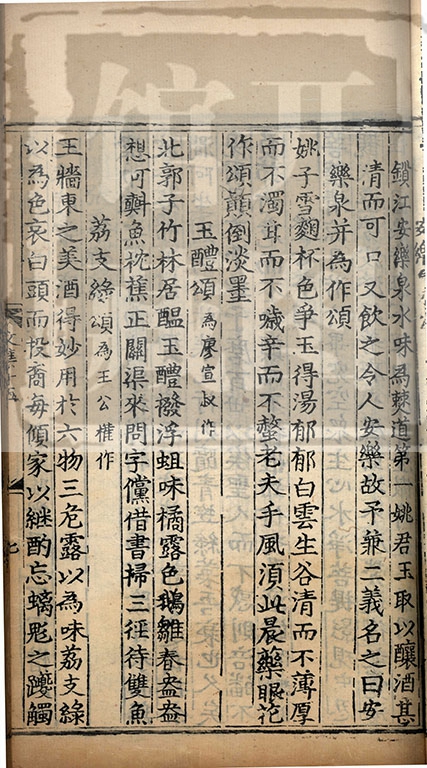 鎖江安樂泉水味為僰道第一姚君玉取以釀酒甚
清而可口又飲之令人安樂故予兼二義名之曰安
樂泉并為作頌
姚子雪麴杯色爭玉得湯郁郁白雲生谷清而不薄厚
而不濁甘而不噦辛而不螫老夫手風須此晨藥眼花
作頌顛倒淡墨
玉醴頌為廖宣叔作
北郭子竹林居醞玉醴撥浮蛆味橘露色鵝雛春盎盎
想可㪺魚枕蕉正關渠來問字儻借書掃三徑待雙魚
荔支綠頌為王公權作
王牆東之美酒得妙用於六物三危露以為味荔支綠
以為色哀白頭而投裔每傾家以継酌忘螭彪之躨觸